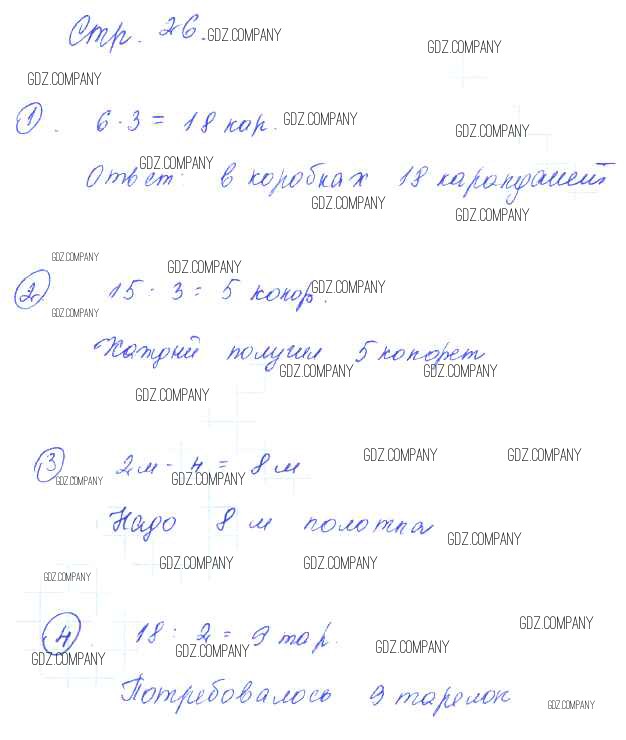 Стр. 26. GDZ.COMPANY
GDZ.COMPANY
GDZ.COMPANY
1. 6 · 3 = 18 кар. GDZ.COMPANY
GDZ.COMPANY
GDZ.COMPANY
Ответ: в коробках 18 карандашей
GDZ.COMPANY
GDZ.COMPANY
GDZ.COMPANY
GDZ.COMPANY
2. 15 : 3 = 5 конф. GDZ.COMPANY
GDZ.COMPANY
Каждый получил 5 конфет
GDZ.COMPANY GDZ.COMPANY
GDZ.COMPANY
GDZ.COMPANY GDZ.COMPANY
3 2 м · 4 = 8 м
GDZ.COMPANY GDZ.COMPANY
Надо 8 м полотна
GDZ.COMPANY
GDZ.COMPANY GDZ.COMPANY
GDZ.COMPANY
GDZ.COMPANY
4. 18 : 2 = 9 тар.
GDZ.COMPANY GDZ.COMPANY GDZ.COMPANY
Потребовалось 9 тарелок
GDZ.COMPANY